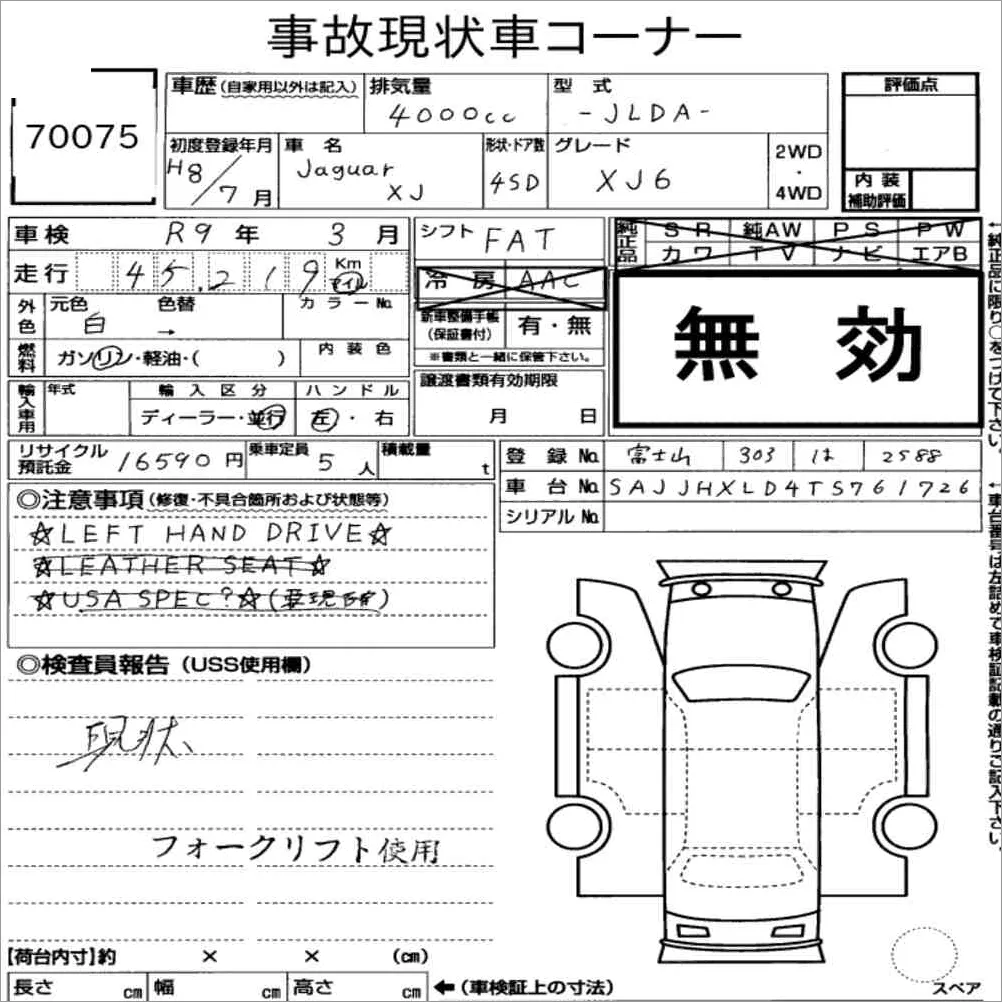 事故現状車コーナー
70075
車歴 (自家用以外は記入) 排気量 4000cc 型式 -JLDA- 評価点
初度登録年月 H8/7月 車名 Jaguar XJ 形状・ドア数 4SD グレード XJ6 2WD・4WD
内装補助評価
車検 R9年 3月 シフト FAT 純正品 SR 純AW PS PW
カワ TV ナビ エアB
走行 45,219 Km マイル 冷房 AAC
無効
外色 元色 白 色替 → カラーNo.
新車整備手帳(保証書付) 有・無
※書類と一緒に保管下さい。
燃料 ガソリン・軽油・( ) 内装色
譲渡書類有効期限 月 日
輸入車用 年式 輸入区分 ディーラー・並行 ハンドル 左・右
リサイクル預託金 16590円 乗車定員 5人 積載量 t
登録No. 富士山 303 は 2588
車台No. SAJJHXLD4TS761726
シリアルNo.
◎注意事項(修復・不具合箇所および状態等)
☆LEFT HAND DRIVE☆
☆LEATHER SEAT☆
☆USA SPEC?☆(要現確)
◎検査員報告(USS使用欄)
現状
フォークリフト使用
【荷台内寸】約 × × (cm)
長さ cm 幅 cm 高さ cm ←(車検証上の寸法)
スペア
←純正品に限り○をつけて下さい。
←車台番号は左詰めで車検証記載の通りご記入下さい。